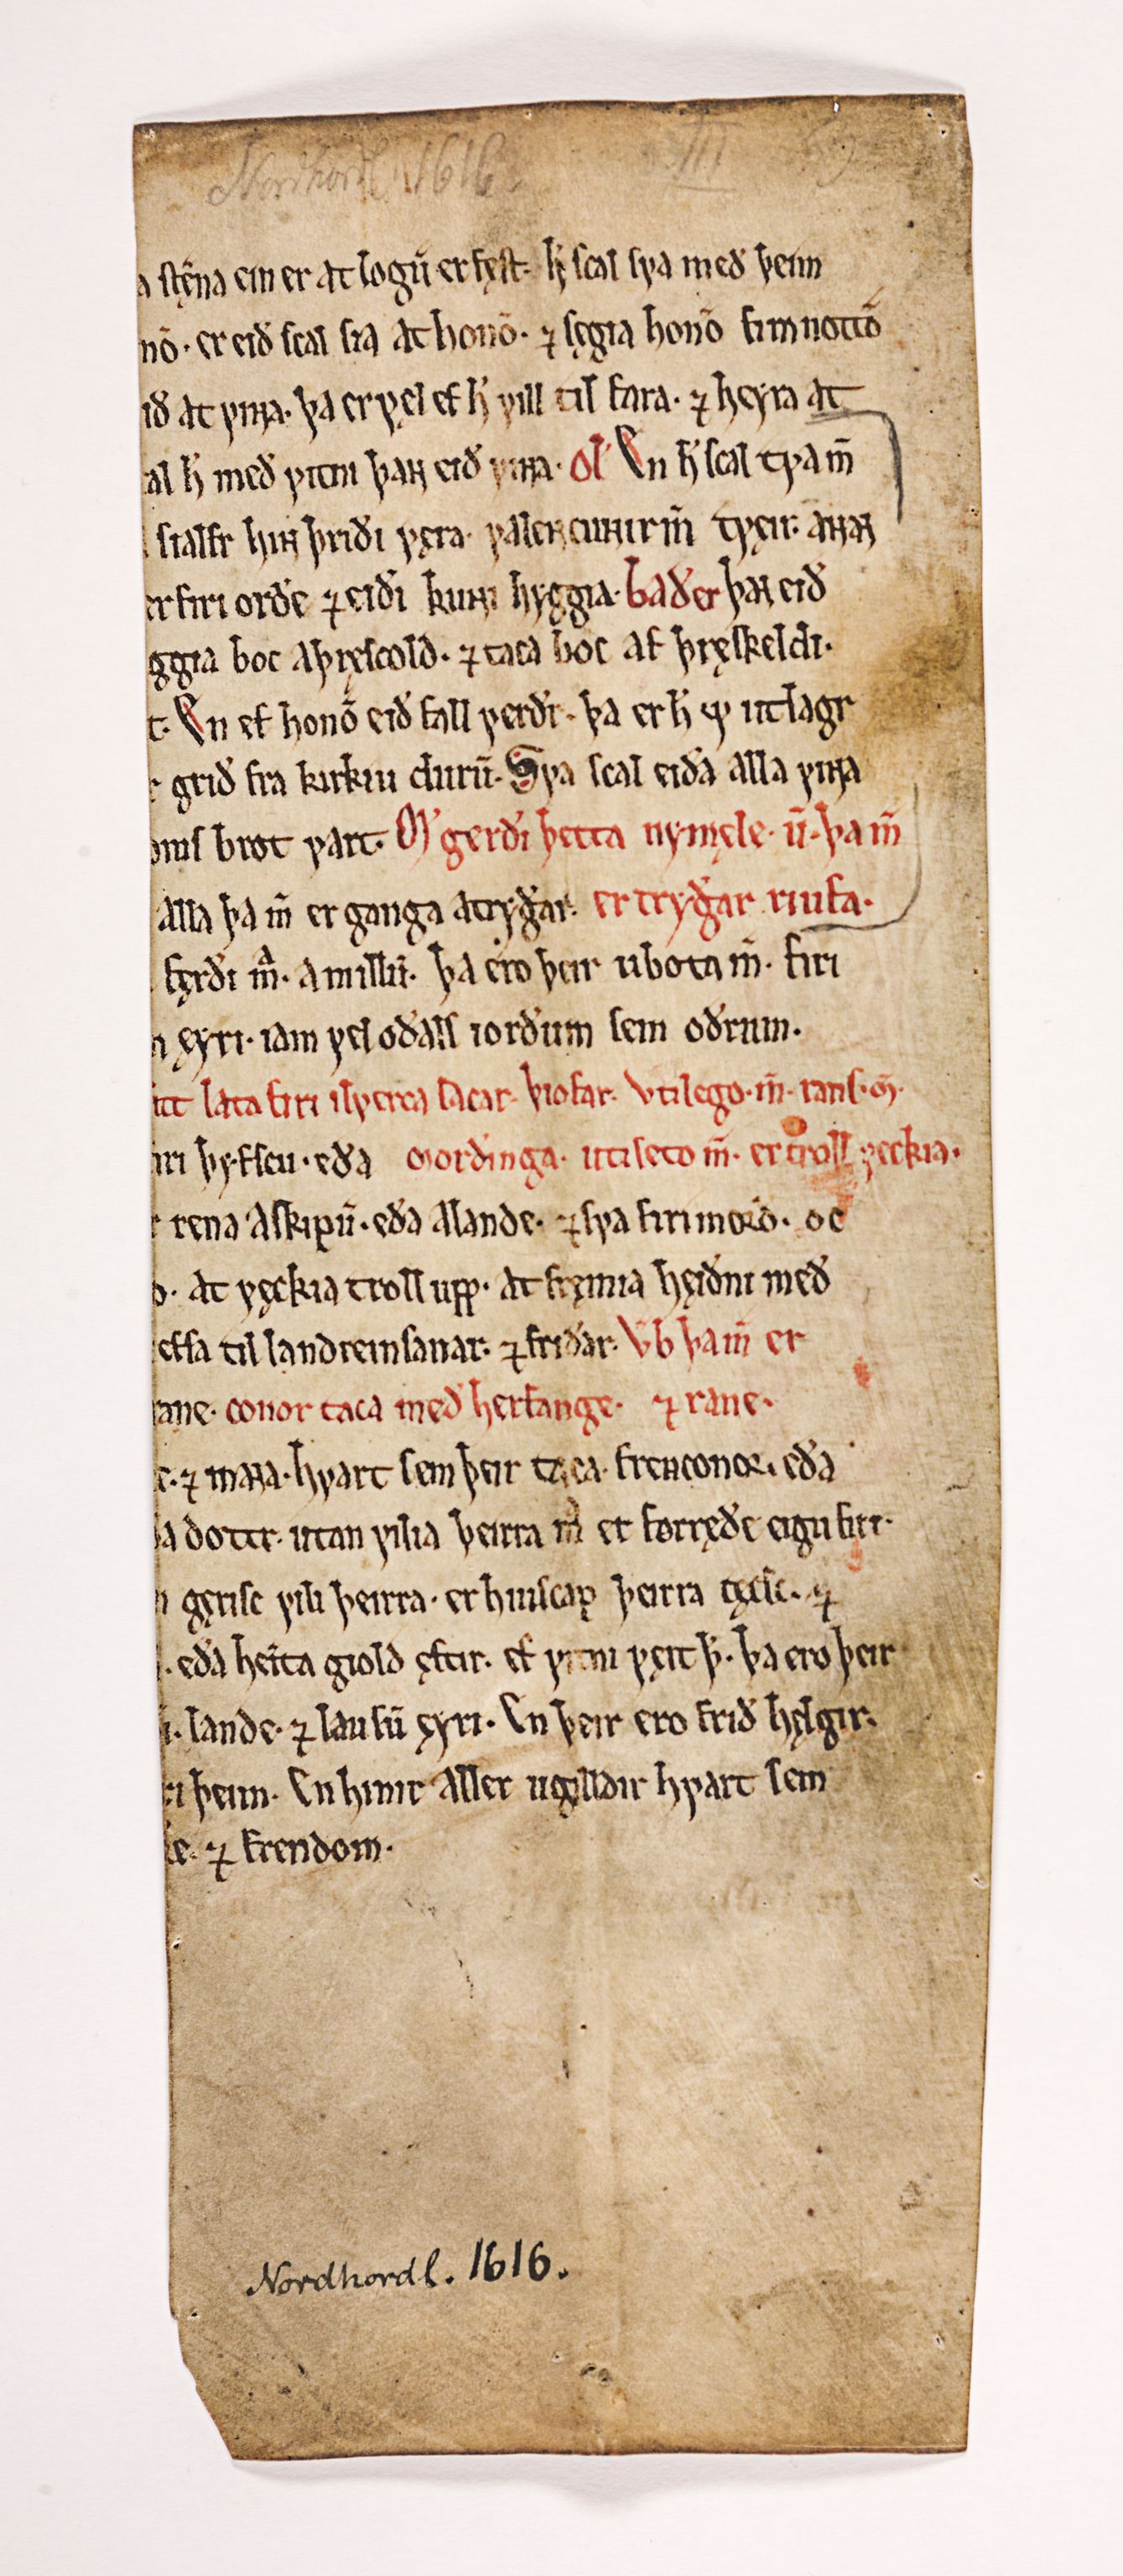 Nordhordl. 1616. III
a stęfna ein er at logū er fęst. hͫ scal sva með þeim
nō· er eið scal sia at honō· ⁊ sęgia honō fim nottō
ið at vinna. þa er vel ef hͫ vill til fara· ⁊ heyra at
al hͫ með vitni þaɴ eið vinna· Ol' En hͫ scal tva m̄
sialfr hiɴ þriði vęra· valenkuɴir m̄ tveir· aɴaʀ
er firi orðe ⁊ eiði kuɴi hyggia· baðer þaɴ eið
ggia boc a þręscold· ⁊ taca boc af þręskeldi·
t. En ef honō eið fall verðr· þa er hͫ utlagr
grið fra kirkiu durū· Sva scal eiða alla viɴa
oms brot vart· M' gerði þetta nymęle· ū· þa m̄
alla þa m̄ er ganga a trygðar· er trygðar riufa·
fęrði m̄· a millū· þa ero þeir ubota m̄· firi
ęyri· iam vel oðalſ iorðum sem oðrum·
itt lata firi ilverca sacar· þiofar· utilego·m̄· rans·m̄·
iri þyfscu· eða morðinga· utiseto m̄· er troll veckia·
r rena a skipū· eða a lande· ⁊ sva firi morð· oc
o· at vęckia troll upp· at fręmia hęiðni með
essa til landreinsanar· ⁊ friðar· Vb þa m̄ er
ane· conor taca með herfange· ⁊ rane·
⁊ maɴa· hvart sem þeir taca· frenconor· eða
a dottr· utan vilia þeirra m̄ er forręðe eigu firi·
gęrisc vili þeirra· er hiuscap þeirra tęcſc· ⁊
eða heimta giold ęftir· ef vitni vęit þ̄· þa ero þeir
lande· ⁊ lausū ęyri· En þeir ero frið hęlgir·
i þeim· En hinir aller ugilldir hvart sem
e· ⁊ frendom·
Nordhordl. 1616.